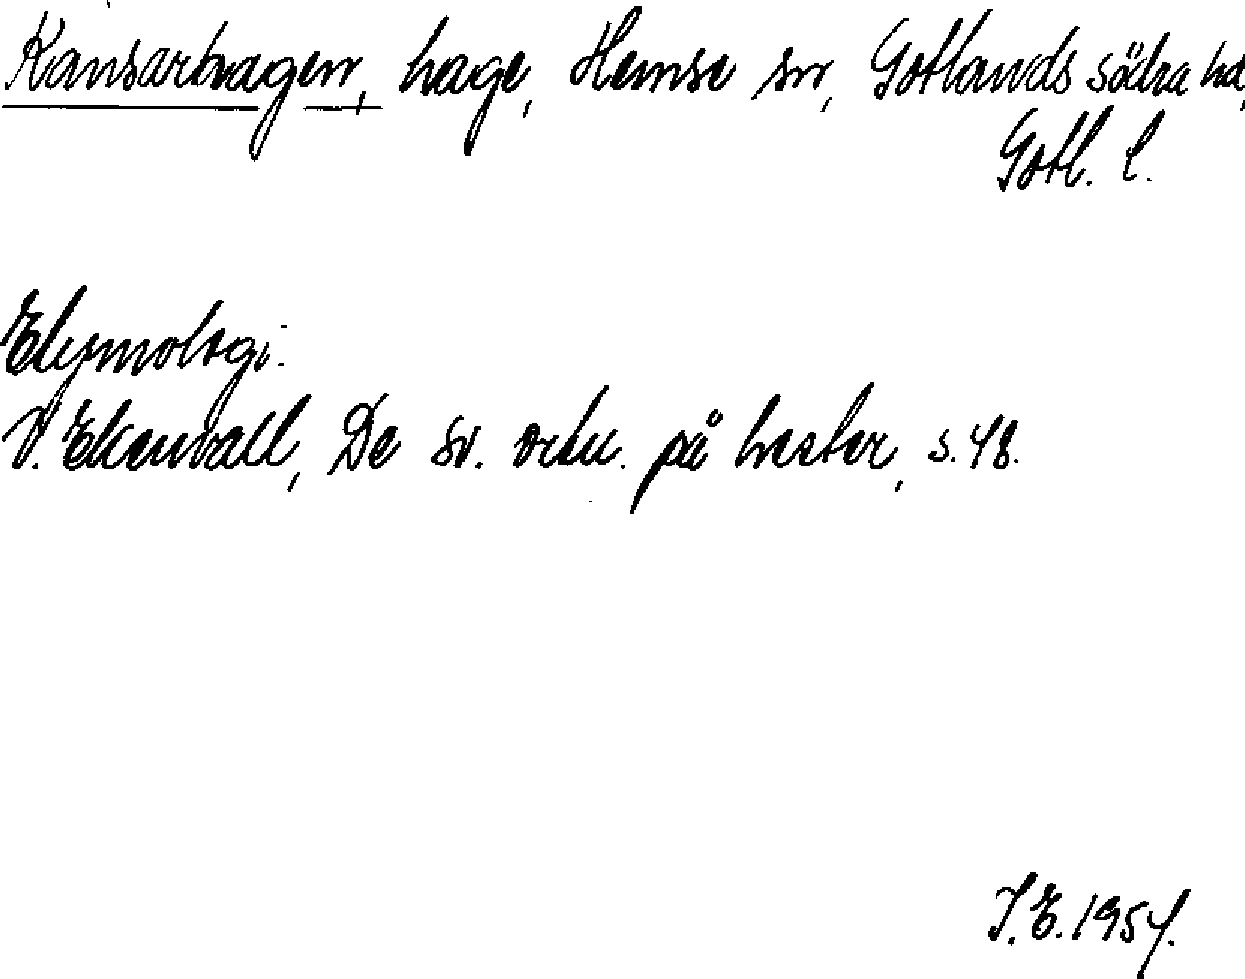 Kansarhagen, hage, Hemse sn, Gotlands södra hd,
Gotl. l.
Etymologi:
V. Ekenvall, De sv. ortn. på hester, s. 48.
I.E. 1954.